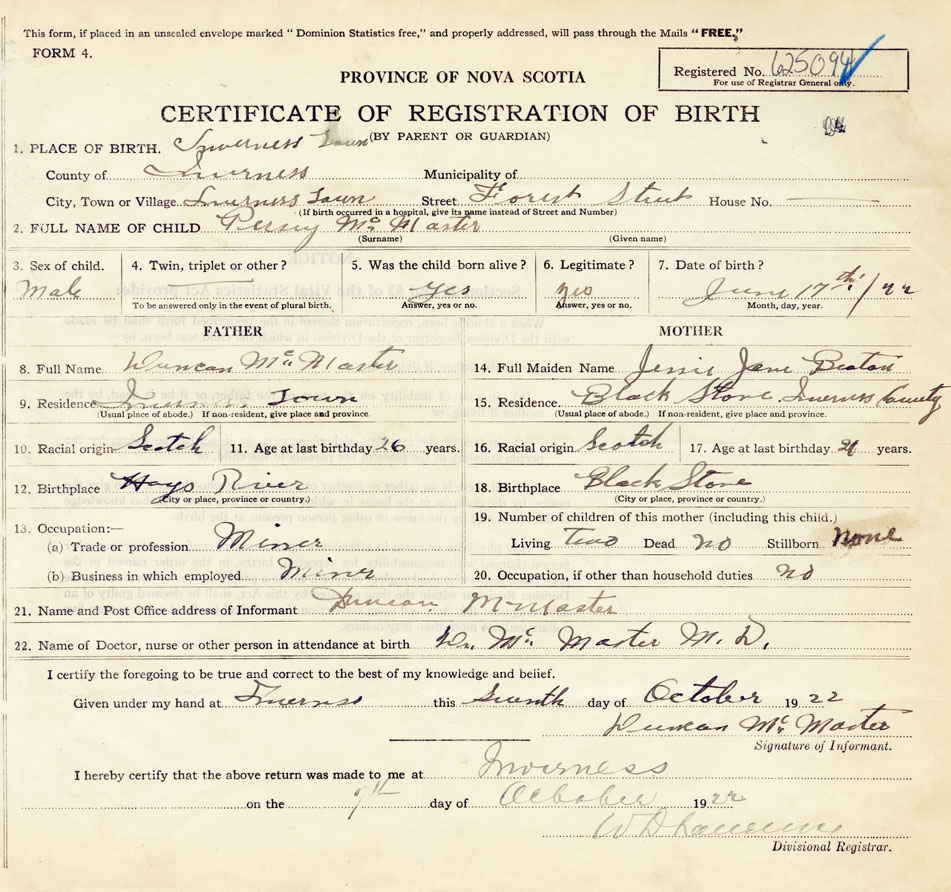 This form, if placed in an unsealed envelope marked "Dominion Statistics free," and properly addressed, will pass through the Mails "FREE."
FORM 4.
Registered No. 625094
For use of Registrar General only.
PROVINCE OF NOVA SCOTIA
CERTIFICATE OF REGISTRATION OF BIRTH
(BY PARENT OR GUARDIAN)
1. PLACE OF BIRTH. Inverness Town
County of Inverness Municipality of
City, Town or Village Inverness Town Street Forest Street House No. —
(If birth occurred in a hospital, give its name instead of Street and Number)
2. FULL NAME OF CHILD Percy Mc Master
(Surname) (Given name)
3. Sex of child. 4. Twin, triplet or other? 5. Was the child born alive? 6. Legitimate? 7. Date of birth?
Male yes yes June 17th / 22
To be answered only in the event of plural birth. Answer, yes or no. Answer, yes or no. Month, day, year.
FATHER MOTHER
8. Full Name Duncan Mc Master 14. Full Maiden Name Jessie Jane Beaton
9. Residence Inverness Town 15. Residence. Black Stone Inverness County
(Usual place of abode.) If non-resident, give place and province. (Usual place of abode.) If non-resident, give place and province.
10. Racial origin Scotch 11. Age at last birthday 26 years. 16. Racial origin Scotch 17. Age at last birthday years.
12. Birthplace Hays River 18. Birthplace Black Stone
(City or place, province or country.) (City or place, province or country.)
13. Occupation:— 19. Number of children of this mother (including this child.)
(a) Trade or profession Miner Living two Dead no Stillborn None
(b) Business in which employed Miner 20. Occupation, if other than household duties no
21. Name and Post Office address of Informant Duncan McMaster
22. Name of Doctor, nurse or other person in attendance at birth Dr. Mc Master M. D.
I certify the foregoing to be true and correct to the best of my knowledge and belief.
Given under my hand at Inverness this Seventh day of October 1922
Duncan Mc Master
Signature of Informant.
I hereby certify that the above return was made to me at Inverness
on the 7th day of October 1922
Divisional Registrar.